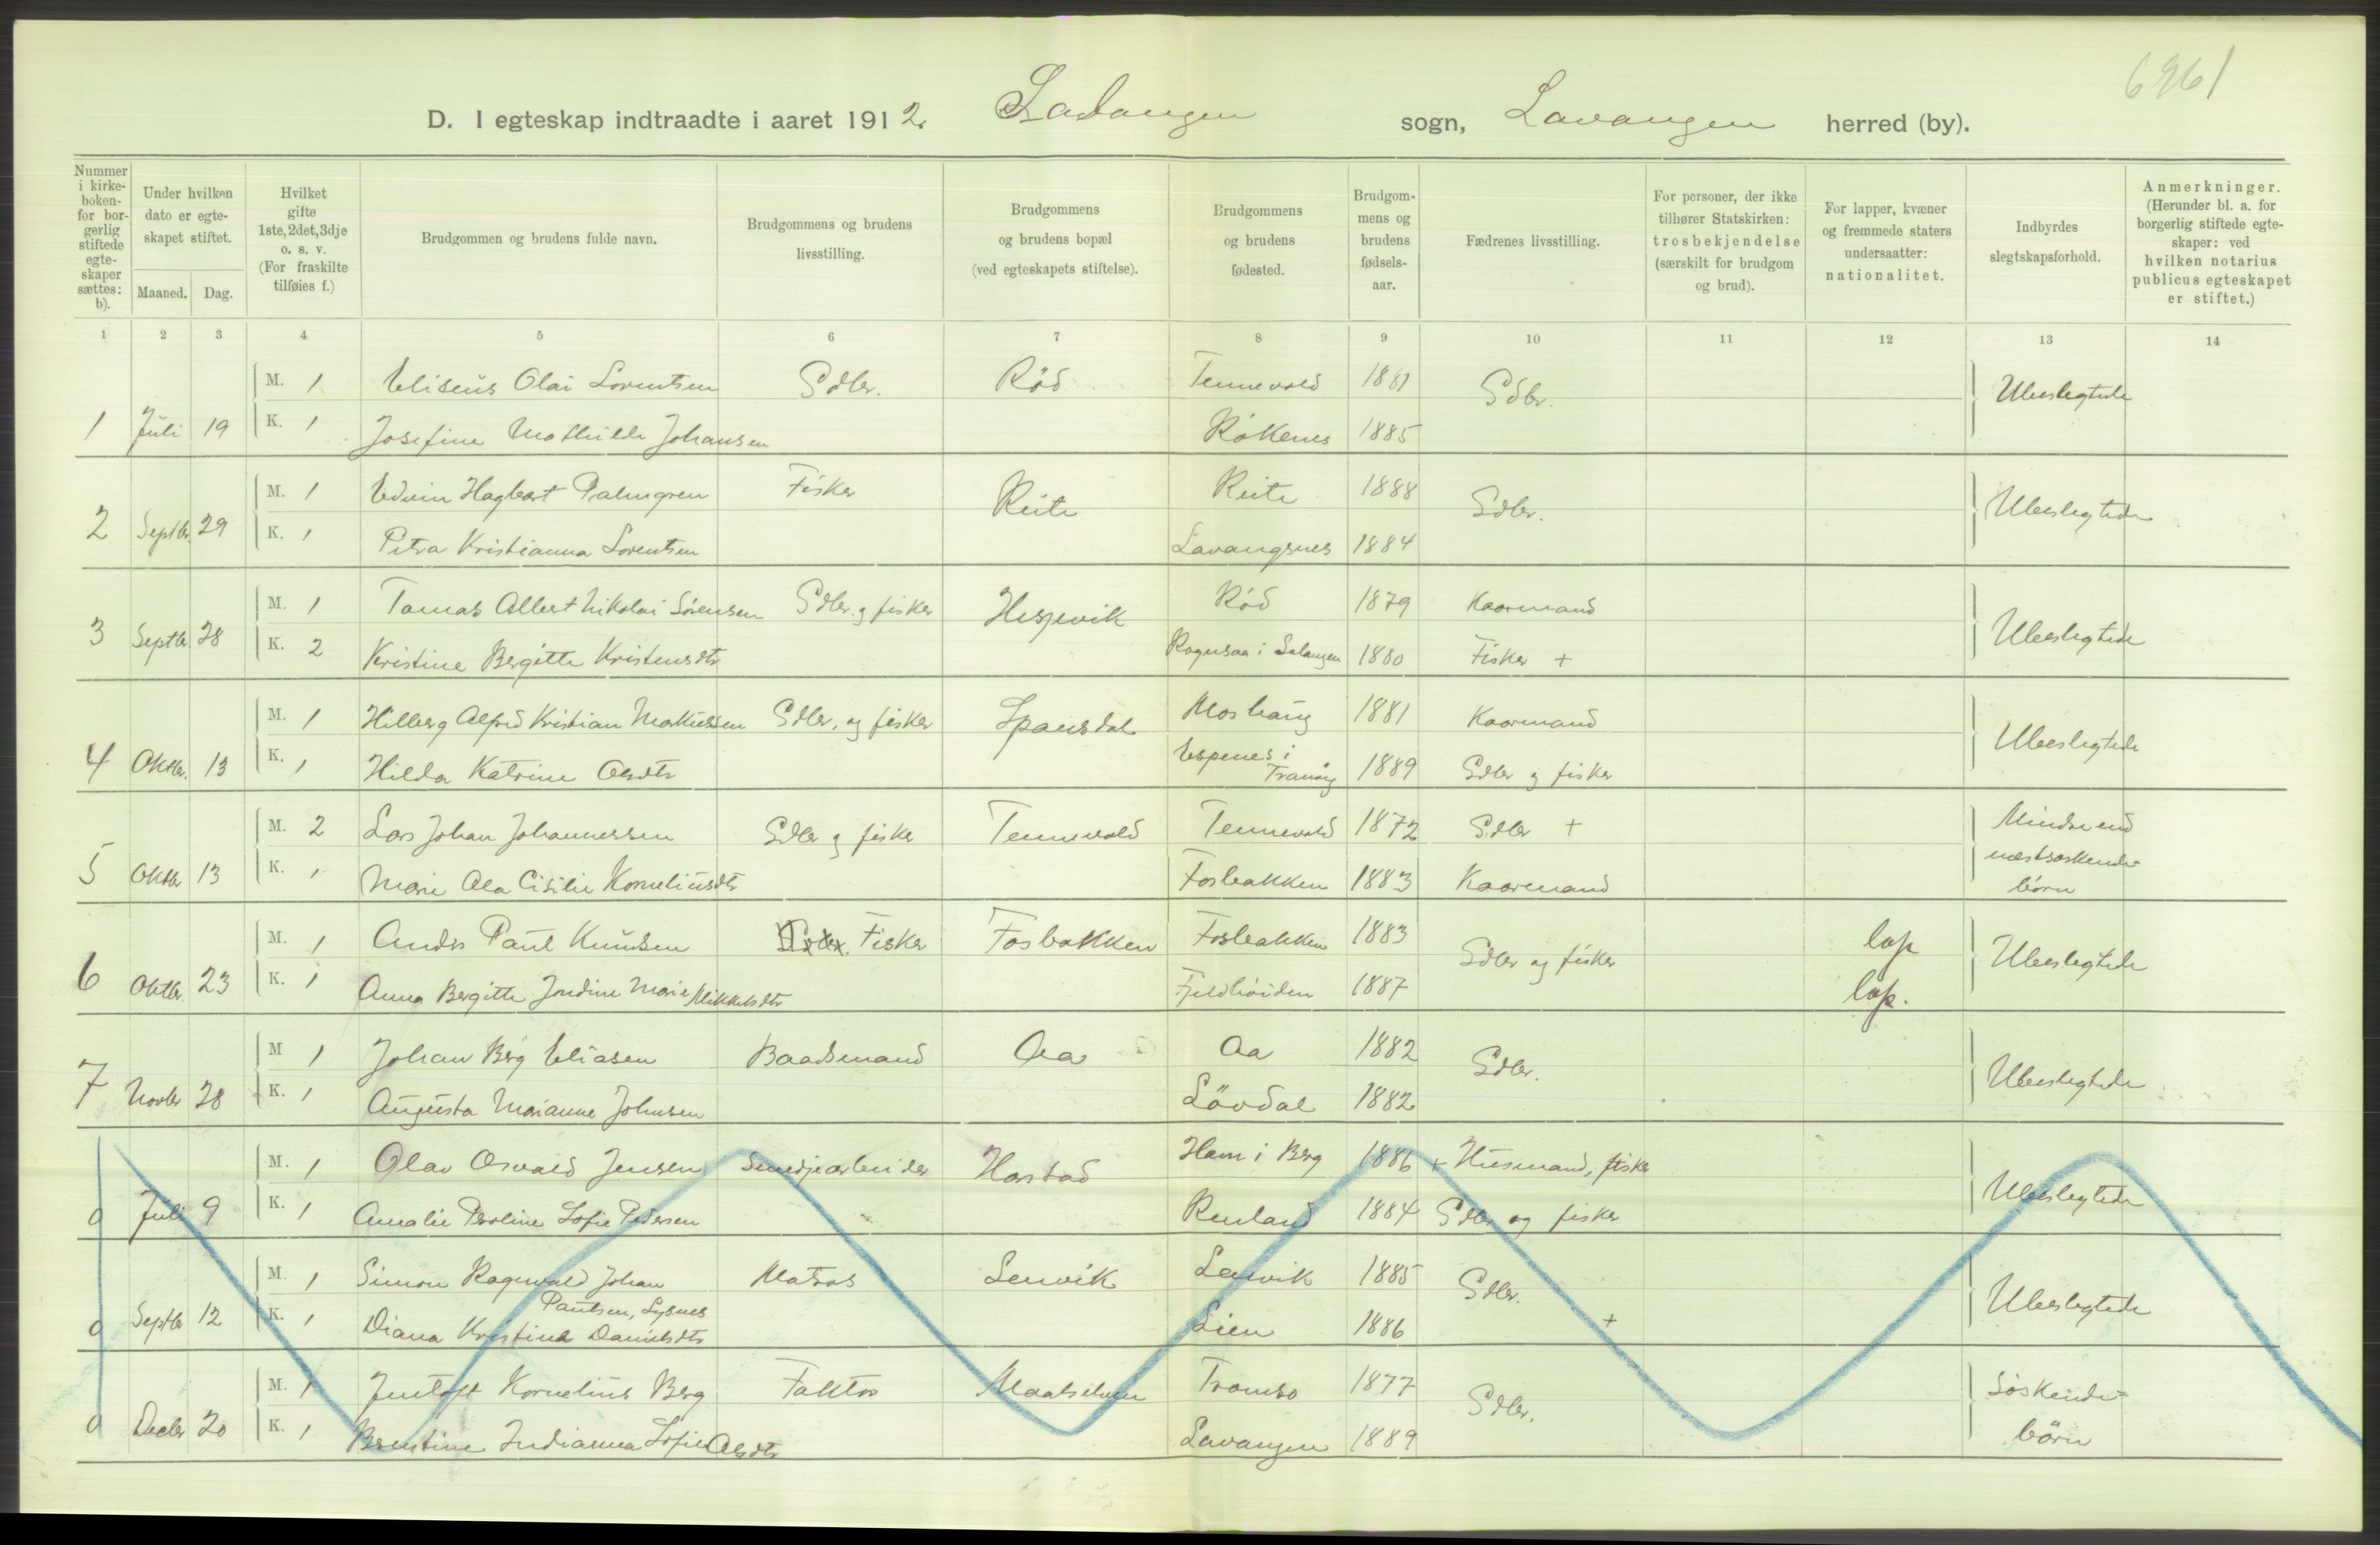 6961
D. I egteskap indtraadte i aaret 1912. Lavangen sogn, Lavangen herred (by).
Nummer i kirke-boken- for bor-gerlig stiftede egte-skaper sættes: b).
Under hvilken dato er egte-skapet stiftet.
Maaned. Dag.
Hvilket gifte 1ste, 2det, 3dje o. s. v. (For fraskilte tilføies f.)
Brudgommen og brudens fulde navn.
Brudgommens og brudens livsstilling.
Brudgommens og brudens bopæl (ved egteskapets stiftelse).
Brudgommens og brudens fødested.
Brudgom-mens og brudens fødsels-aar.
Fædrenes livsstilling.
For personer, der ikke tilhører Statskirken: trosbekjendelse (særskilt for brudgom og brud).
For lapper, kvæner og fremmede staters undersaatter: nationalitet.
Indbyrdes slegtskapsforhold.
Anmerkninger. (Herunder bl. a. for borgerlig stiftede egte-skaper: ved hvilken notarius publicus egteskapet er stiftet.)
1 2 3 4 5 6 7 8 9 10 11 12 13 14
M. 1 Eliseus Olai Lorentsen Gdbr. Rød Tennevold 1881 Gdbr. Ubeslegtede
1 Juli 19 K. 1 Josefine Mathilde Johansen Røkenes 1885
M. 1 Edvin Hagbart Palmgren Fisker Reite Reite 1888 Gdbr. Ubeslegtede
2 Septbr. 29 K. 1 Petra Kristianna Lorentsen Lavangsnes 1884
M. 1 Tomas Albert Nikolai Sørensen Gdbr. og fisker Hesjevik Rød 1879 Kaarmand Ubeslegtede
3 Septbr 28 K. 2 Kristine Bergitte Kristensdtr Rognsaa i Salangen 1880 Fisker +
M. 1 Hilberg Alfred Kristian Markussen Gdbr. og fisker Spansdal Moshaug 1881 Kaarmand Ubeslegtede
4 Oktbr. 13 K. 1 Hilda Katrine Olsdtr Espenes i Tranøy 1889 Gdbr og fisker
M. 2 Lars Johan Johannessen Gdbr og fisker Tennevold Tennevold 1872 Gdbr + Mindre end næstsøskende-børn
5 Oktbr 13 K. 1 Marie Ala Cisilie Korneliusdtr Fosbakken 1883 Kaarmand
M. 1 Anders Paul Knudsen Fisker Fosbakken Fosbakken 1883 Gdbr og fisker lap Ubeslegtede
6 Oktbr. 23 K. 1 Anna Bergitte Jondine Marie Mikkelsdtr Fjeldhøiden 1887 lap.
M 1 Johan Berg Eliasen Baadsmand Aa Aa 1882 Gdbr. Ubeslegtede
7 Novbr 28 K. 1 Augusta Marianne Johnsen Løvdal 1882
M. 1 Olav Osvald Jensen Smedjearbeider Harstad Ham i Berg 1886 + Husmand, fisker Ubeslegtede
0 Juli 9 K. 1 Amalie Pauline Sofie Pedersen Renland 1884 Gdbr og fisker
M. 1 Simon Ragnvald Johan Paulsen, Lysnes Matros Lenvik Lenvik 1885 Gdbr. Ubeslegtede
0 Septbr 12 K. 1 Diana Kristine Danielsdtr Lien 1886 +
M. 1 Jentoft Kornelius Berg Faktor Maalselven Tromsø 1877 Gdbr. Søskende-børn
0 Decbr 20 K. 1 Berntine Indianna Sofie Olsdtr Lavangen 1889